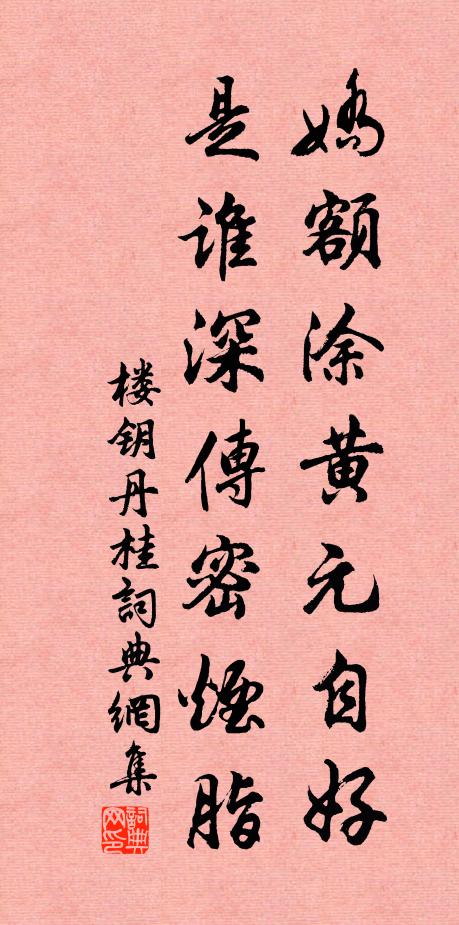 嬌額涂黄元自好
是誰深傳密煙脂
楼钥丹桂詞典網集
詞典网印